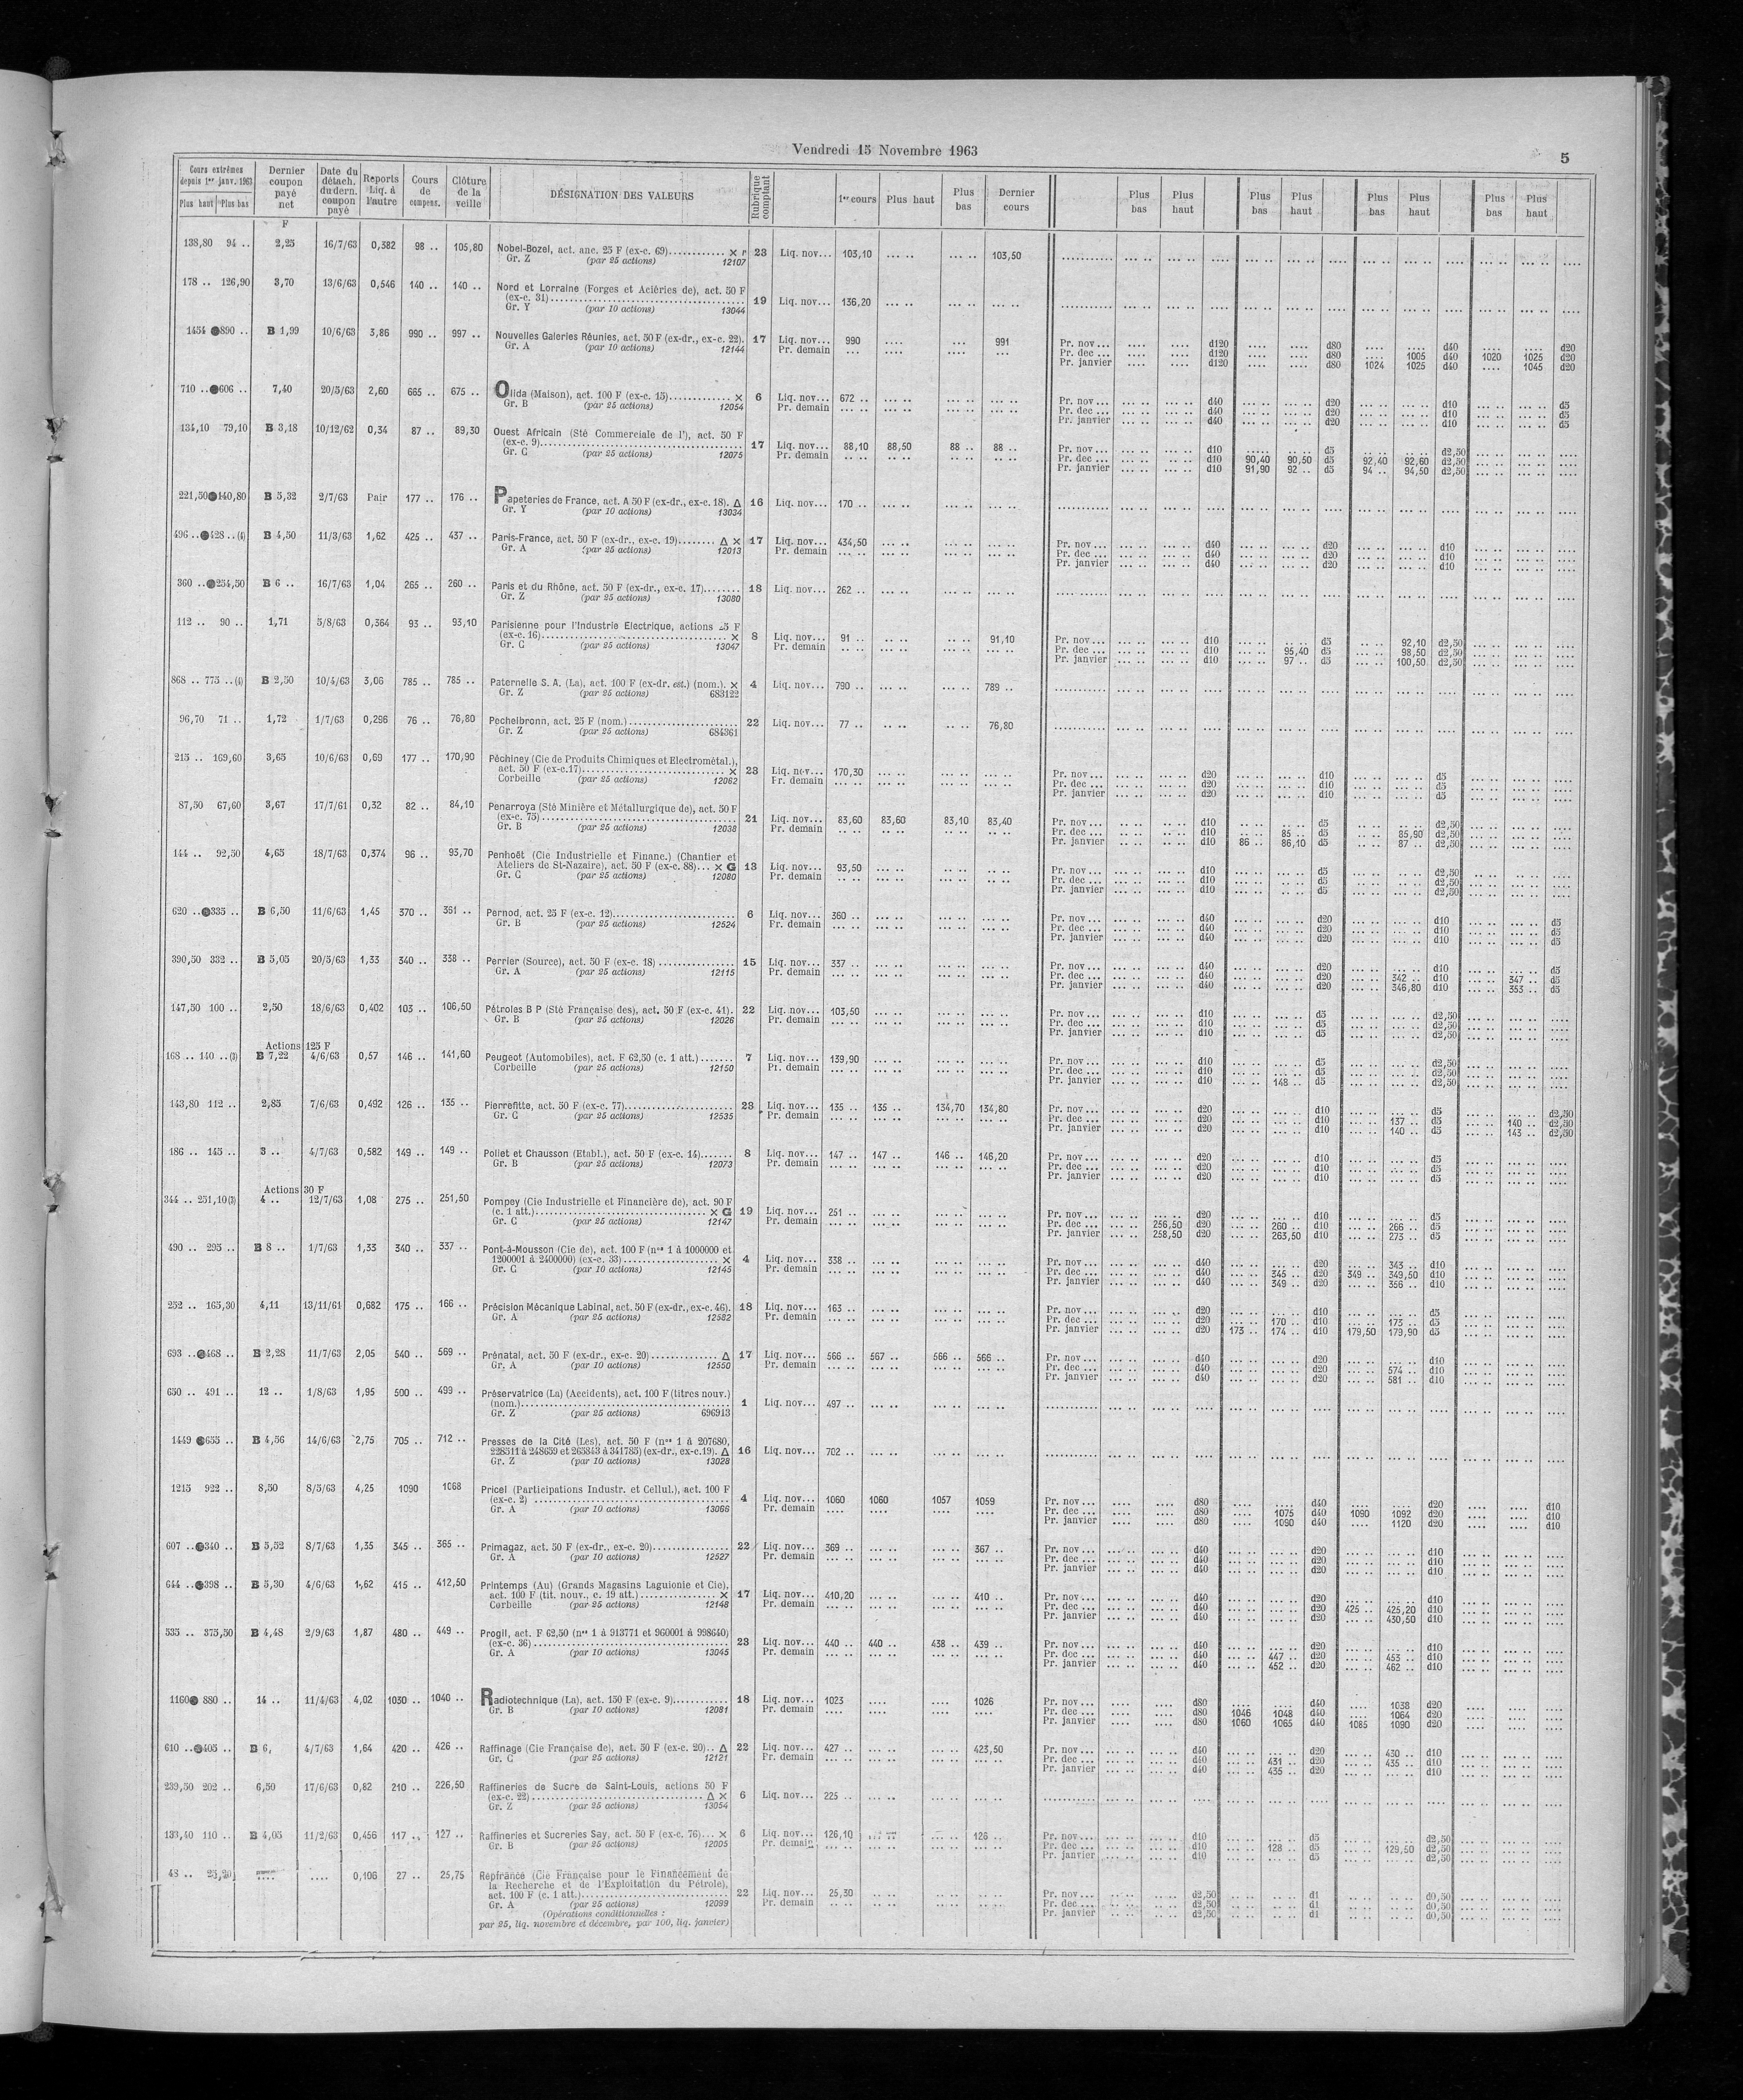 Vendredi 15 Novembre 1963
5
Cours extrêmes depuis 1er janv. 1963 Plus haut Plus bas Dernier coupon payé net Date du détach. du dern. coupon payé Reports Liq. à l'autre Cours de compens. Clôture de la veille DÉSIGNATION DES VALEURS Rubrique comptant 1er cours Plus haut Plus bas Dernier cours Plus bas Plus haut Plus bas Plus haut Plus bas Plus haut Plus bas Plus haut
F
138,80 94 .. 2,25 16/7/63 0,382 98 .. 105,80 Nobel-Bozel, act. anc. 25 F (ex-c. 69)............ × r 23 Liq. nov... 103,10 ... .. ... .. 103,50
Gr. Z (par 25 actions) 12107
178 .. 126,90 3,70 13/6/63 0,546 140 .. 140 .. Nord et Lorraine (Forges et Aciéries de), act. 50 F
(ex-c. 31)............ 19 Liq. nov... 136,20 ... .. ... .. ... ..
Gr. Y (par 10 actions) 13044
1454 890 .. B 1,99 10/6/63 3,86 990 .. 997 .. Nouvelles Galeries Réunies, act. 50 F (ex-dr., ex-c. 22). 17 Liq. nov... 990 .... ... 991 Pr. nov ... .... .... d120 .... .... d80 .... .... d40 .... .... d20
Gr. A (par 10 actions) 12144 Pr. demain ... .... .... ... Pr. dec ... .... .... d120 .... .... d80 .... 1005 d40 1020 1025 d20
Pr. janvier .... .... d120 .... .... d80 1024 1025 d40 .... 1045 d20
710 .. 606 .. 7,40 20/5/63 2,60 665 .. 675 .. Olida (Maison), act. 100 F (ex-c. 15)............ × 6 Liq. nov... 672 .. Pr. nov ... d40 d20 d10 d5
Gr. B (par 25 actions) 12054 Pr. demain Pr. dec ... d40 d20 d10 d5
Pr. janvier d40 d20 d10 d5
134,10 79,10 B 3,18 10/12/62 0,34 87 .. 89,30 Ouest Africain (Sté Commerciale de l'), act. 50 F
(ex-c. 9)............ 17 Liq. nov... 88,10 88,50 88 .. 88 .. Pr. nov ... d10 d5 d2,50
Gr. C (par 25 actions) 12075 Pr. demain Pr. dec ... d10 90,40 90,50 d5 92,40 92,60 d2,50
Pr. janvier d10 91,90 92 .. d5 94 .. 94,50 d2,50
221,50 140,80 B 5,32 2/7/63 Pair 177 .. 176 .. Papeteries de France, act. A 50 F (ex-dr., ex-c. 18). Δ 16 Liq. nov... 170 ..
Gr. Y (par 10 actions) 13034
496 .. 428 .. (4) B 4,50 11/3/63 1,62 425 .. 437 .. Paris-France, act. 50 F (ex-dr., ex-c. 19)........ Δ × 17 Liq. nov... 434,50 Pr. nov ... d40 d20 d10
Gr. A (par 25 actions) 12013 Pr. demain Pr. dec ... d40 d20 d10
Pr. janvier d40 d20 d10
360 .. 254,50 B 6 .. 16/7/63 1,04 265 .. 260 .. Paris et du Rhône, act. 50 F (ex-dr., ex-c. 17)........ 18 Liq. nov... 262 ..
Gr. Z (par 25 actions) 13080
112 .. 90 .. 1,71 5/8/63 0,364 93 .. 93,10 Parisienne pour l'Industrie Electrique, actions 25 F
(ex-c. 16)............ × 8 Liq. nov... 91 .. 91,10 Pr. nov ... d10 d5 92,10 d2,50
Gr. C (par 25 actions) 13047 Pr. demain Pr. dec ... d10 95,40 d5 98,50 d2,50
Pr. janvier d10 97 .. d5 100,50 d2,50
868 .. 775 .. (4) B 2,50 10/4/63 3,06 785 .. 785 .. Paternelle S. A. (La), act. 100 F (ex-dr. est.) (nom.). × 4 Liq. nov... 790 .. 789 ..
Gr. Z (par 25 actions) 683122
96,70 71 .. 1,72 1/7/63 0,296 76 .. 76,80 Pechelbronn, act. 25 F (nom.)............ 22 Liq. nov... 77 .. 76,80
Gr. Z (par 25 actions) 684361
215 .. 169,60 3,65 10/6/63 0,69 177 .. 170,90 Péchiney (Cie de Produits Chimiques et Electrométal.),
act. 50 F (ex-c.17)............ × 23 Liq. nov... 170,30 Pr. nov ... d20 d10 d5
Corbeille (par 25 actions) 12062 Pr. demain Pr. dec ... d20 d10 d5
Pr. janvier d20 d10 d5
87,50 67,60 3,67 17/7/61 0,32 82 .. 84,10 Penarroya (Sté Minière et Métallurgique de), act. 50 F
(ex-c. 75)............ 21 Liq. nov... 83,60 83,60 83,10 83,40 Pr. nov ... d10 d5 d2,50
Gr. B (par 25 actions) 12038 Pr. demain Pr. dec ... d10 85 .. d5 85,90 d2,50
Pr. janvier d10 86 .. 86,10 d5 87 .. d2,50
144 .. 92,50 4,65 18/7/63 0,374 96 .. 93,70 Penhoët (Cie Industrielle et Financ.) (Chantier et
Ateliers de St-Nazaire), act. 50 F (ex-c. 88)... × G 13 Liq. nov... 93,50 Pr. nov ... d10 d5 d2,50
Gr. C (par 25 actions) 12080 Pr. demain Pr. dec ... d10 d5 d2,50
Pr. janvier d10 d5 d2,50
620 .. 335 .. B 6,50 11/6/63 1,45 370 .. 361 .. Pernod, act. 25 F (ex-c. 12)............ 6 Liq. nov... 360 .. Pr. nov ... d40 d20 d10 d5
Gr. B (par 25 actions) 12524 Pr. demain Pr. dec ... d40 d20 d10 d5
Pr. janvier d40 d20 d10 d5
390,50 332 .. B 5,05 20/5/63 1,33 340 .. 338 .. Perrier (Source), act. 50 F (ex-c. 18)............ 15 Liq. nov... 337 .. Pr. nov ... d40 d20 d10 d5
Gr. A (par 25 actions) 12115 Pr. demain Pr. dec ... d40 d20 342 .. d10 347 .. d5
Pr. janvier d40 d20 346,80 d10 353 .. d5
147,50 100 .. 2,50 18/6/63 0,402 103 .. 106,50 Pétroles B P (Sté Française des), act. 50 F (ex-c. 41). 22 Liq. nov... 103,50 Pr. nov ... d10 d5 d2,50
Gr. B (par 25 actions) 12026 Pr. demain Pr. dec ... d10 d5 d2,50
Pr. janvier d10 d5 d2,50
Actions 125 F
168 .. 140 .. (3) B 7,22 4/6/63 0,57 146 .. 141,60 Peugeot (Automobiles), act. F 62,50 (c. 1 att.)....... 7 Liq. nov... 139,90 Pr. nov ... d10 d5 d2,50
Corbeille (par 25 actions) 12150 Pr. demain Pr. dec ... d10 d5 d2,50
Pr. janvier d10 148 .. d5 d2,50
143,80 112 .. 2,85 7/6/63 0,492 126 .. 135 .. Pierrefitte, act. 50 F (ex-c. 77)............ 23 Liq. nov... 135 .. 135 .. 134,70 134,80 Pr. nov ... d20 d10 d5 d2,50
Gr. C (par 25 actions) 12535 Pr. demain Pr. dec ... d20 d10 137 .. d5 140 .. d2,50
Pr. janvier d20 d10 140 .. d5 143 .. d2,50
186 .. 145 .. 3 .. 4/7/63 0,582 149 .. 149 .. Poliet et Chausson (Etabl.), act. 50 F (ex-c. 14)....... 8 Liq. nov... 147 .. 147 .. 146 .. 146,20 Pr. nov ... d20 d10 d5
Gr. B (par 25 actions) 12073 Pr. demain Pr. dec ... d20 d10 d5
Pr. janvier d20 d10 d5
Actions 30 F
344 .. 251,10 (3) 4 .. 12/7/63 1,08 275 .. 251,50 Pompey (Cie Industrielle et Financière de), act. 90 F
(c. 1 att.)............ × G 19 Liq. nov... 251 .. Pr. nov ... d20 d10 d5
Gr. C (par 25 actions) 12147 Pr. demain Pr. dec ... 256,50 d20 260 .. d10 266 .. d5
Pr. janvier 258,50 d20 263,50 d10 273 .. d5
490 .. 295 .. B 8 .. 1/7/63 1,33 340 .. 337 .. Pont-à-Mousson (Cie de), act. 100 F (nos 1 à 1000000 et
1200001 à 2400000) (ex-c. 33)............ × 4 Liq. nov... 338 .. Pr. nov ... d40 d20 343 .. d10
Gr. C (par 10 actions) 12145 Pr. demain Pr. dec ... d40 345 .. d20 349 .. 349,50 d10
Pr. janvier d40 349 .. d20 356 .. d10
252 .. 165,30 4,11 13/11/61 0,682 175 .. 166 .. Précision Mécanique Labinal, act. 50 F (ex-dr., ex-c. 46). 18 Liq. nov... 163 .. Pr. nov ... d20 d10 d5
Gr. A (par 25 actions) 12582 Pr. demain Pr. dec ... d20 170 .. d10 173 .. d5
Pr. janvier d20 173 .. 174 .. d10 179,50 179,90 d5
693 .. 468 .. B 2,28 11/7/63 2,05 540 .. 569 .. Prénatal, act. 50 F (ex-dr., ex-c. 20)............ Δ 17 Liq. nov... 566 .. 567 .. 566 .. 566 .. Pr. nov ... d40 d20 d10
Gr. A (par 10 actions) 12550 Pr. demain Pr. dec ... d40 d20 574 .. d10
Pr. janvier d40 d20 581 .. d10
650 .. 491 .. 12 .. 1/8/63 1,95 500 .. 499 .. Préservatrice (La) (Accidents), act. 100 F (titres nouv.)
(nom.)............ 1 Liq. nov... 497 ..
Gr. Z (par 25 actions) 696913
1449 655 .. B 4,56 14/6/63 2,75 705 .. 712 .. Presses de la Cité (Les), act. 50 F (nos 1 à 207680,
228511 à 248659 et 265843 à 341785) (ex-dr., ex-c.19). Δ 16 Liq. nov... 702 ..
Gr. Z (par 10 actions) 13028
1215 922 .. 8,50 8/5/63 4,25 1090 1068 Pricel (Participations Industr. et Cellul.), act. 100 F
(ex-c. 2)............ 4 Liq. nov... 1060 1060 1057 1059 Pr. nov ... d80 d40 d20 d10
Gr. A (par 10 actions) 13066 Pr. demain Pr. dec ... d80 1075 d40 1090 1092 d20 d10
Pr. janvier d80 1090 d40 1120 d20 d10
607 .. 340 .. B 5,52 8/7/63 1,35 345 .. 365 .. Primagaz, act. 50 F (ex-dr., ex-c. 20)............ 22 Liq. nov... 369 .. 367 .. Pr. nov ... d40 d20 d10
Gr. A (par 10 actions) 12527 Pr. demain Pr. dec ... d40 d20 d10
Pr. janvier d40 d20 d10
644 .. 398 .. B 5,30 4/6/63 1,62 415 .. 412,50 Printemps (Au) (Grands Magasins Laguionie et Cie),
act. 100 F (tit. nouv., c. 19 att.)............ × 17 Liq. nov... 410,20 410 .. Pr. nov ... d40 d20 d10
Corbeille (par 25 actions) 12148 Pr. demain Pr. dec ... d40 d20 425 .. 425,20 d10
Pr. janvier d40 d20 430,50 d10
535 .. 375,50 B 4,48 2/9/63 1,87 480 .. 449 .. Progil, act. F 62,50 (nos 1 à 913771 et 960001 à 998640)
(ex-c. 36)............ 23 Liq. nov... 440 .. 440 .. 438 .. 439 .. Pr. nov ... d40 d20 d10
Gr. A (par 10 actions) 13045 Pr. demain Pr. dec ... d40 447 .. d20 453 .. d10
Pr. janvier d40 452 .. d20 462 .. d10
1160 880 .. 14 .. 11/4/63 4,02 1030 .. 1040 .. Radiotechnique (La), act. 150 F (ex-c. 9)............ 18 Liq. nov... 1023 1026 Pr. nov ... d80 d40 1038 d20
Gr. B (par 10 actions) 12081 Pr. demain Pr. dec ... d80 1046 1048 d40 1064 d20
Pr. janvier d80 1060 1065 d40 1085 1090 d20
610 .. 405 .. B 6, 4/7/63 1,64 420 .. 426 .. Raffinage (Cie Française de), act. 50 F (ex-c. 20).. Δ 22 Liq. nov... 427 .. 423,50 Pr. nov ... d40 d20 430 .. d10
Gr. C (par 25 actions) 12121 Pr. demain Pr. dec ... d40 431 .. d20 435 .. d10
Pr. janvier d40 435 .. d20 d10
239,50 202 .. 6,50 17/6/63 0,82 210 .. 226,50 Raffineries de Sucre de Saint-Louis, actions 50 F
(ex-c. 22)............ Δ × 6 Liq. nov... 225 ..
Gr. Z (par 25 actions) 13054
133,40 110 .. B 4,05 11/2/63 0,456 117 .. 127 .. Raffineries et Sucreries Say, act. 50 F (ex-c. 76)... × 6 Liq. nov... 126,10 126 .. Pr. nov ... d10 d5 d2,50
Gr. B (par 25 actions) 12005 Pr. demain Pr. dec ... d10 128 .. d5 129,50 d2,50
Pr. janvier d10 d5 d2,50
48 .. 25,20 .... .... 0,106 27 .. 25,75 Repfrance (Cie Française pour le Financement de
la Recherche et de l'Exploitation du Pétrole),
act. 100 F (c. 1 att.)............ 22 Liq. nov... 25,30 Pr. nov ... d2,50 d1 d0,50
Gr. A (par 25 actions) 12099 Pr. demain Pr. dec ... d2,50 d1 d0,50
(Opérations conditionnelles : Pr. janvier d2,50 d1 d0,50
par 25, liq. novembre et décembre, par 100, liq. janvier)